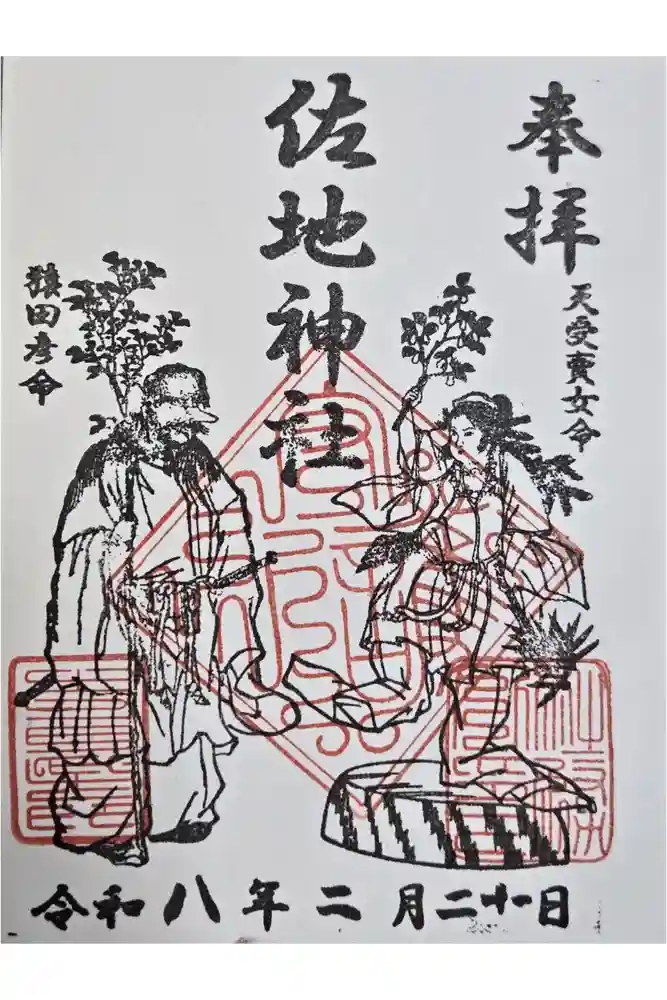 奉拝
天受賣女命
佐地神社
猿田彦命
令和八年二月二十一日